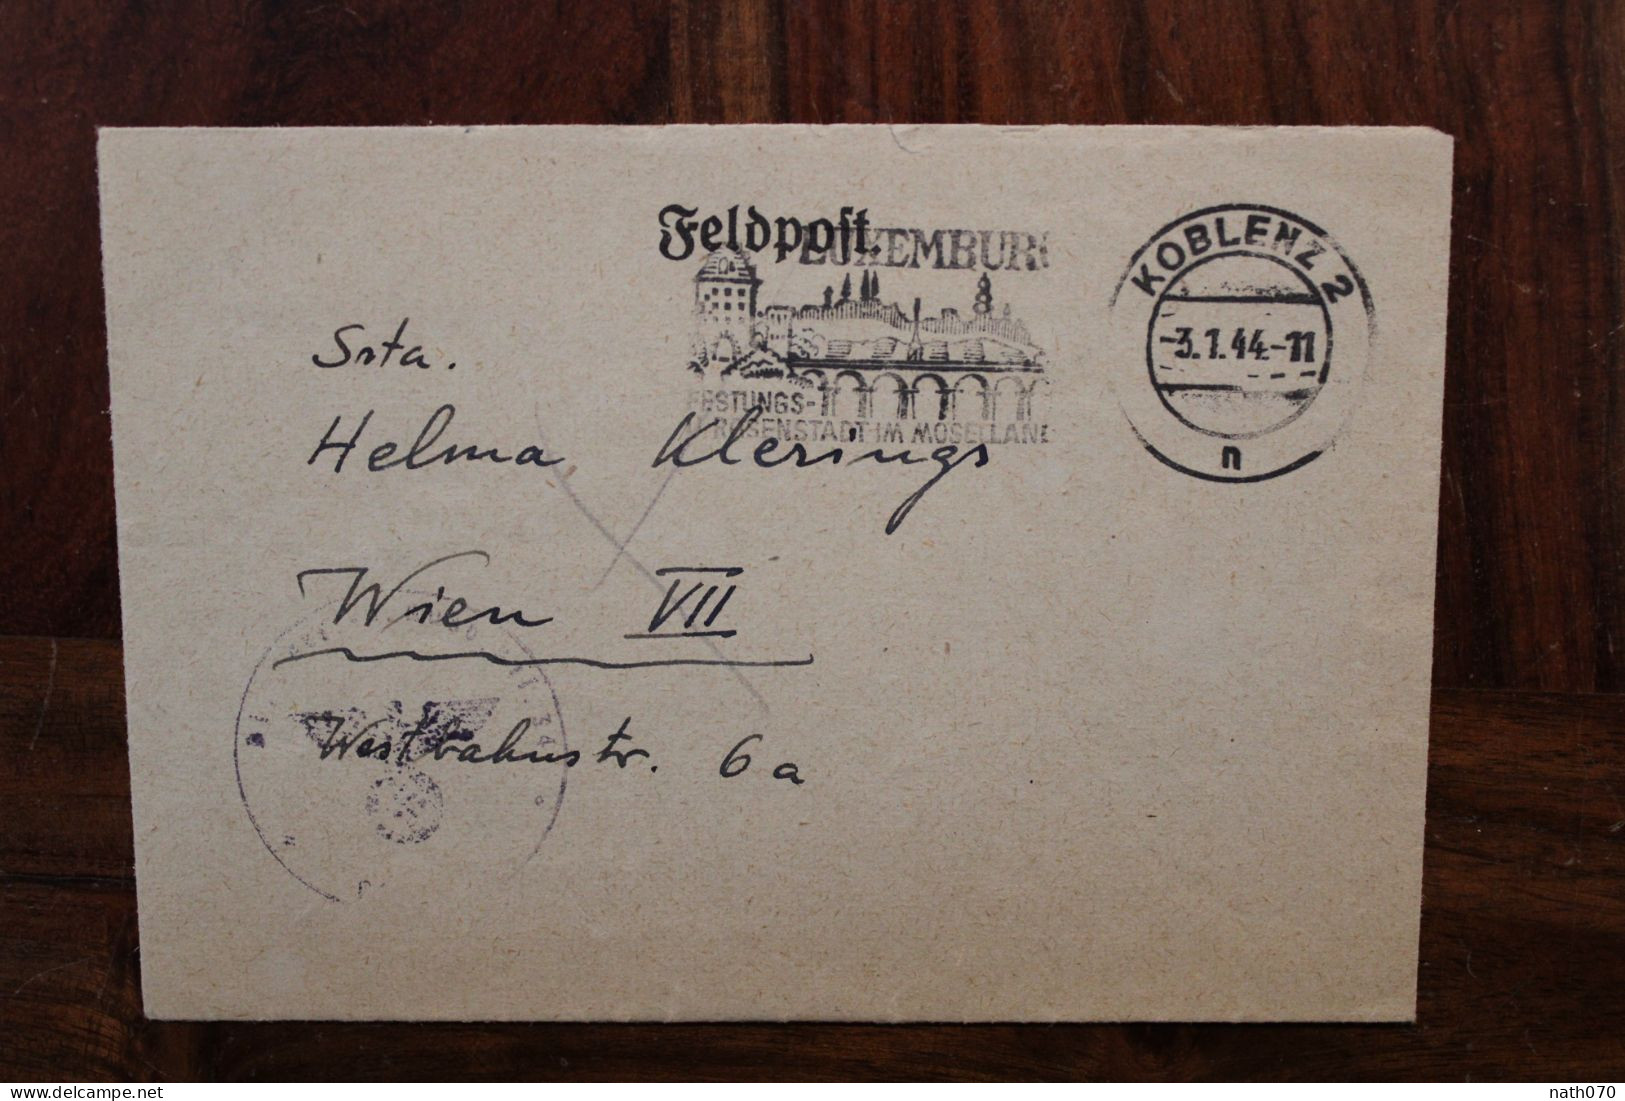 Feldpost.
LUXEMBURG
KOBLENZ 2
-3.1.44.-11
n
FESTUNGS-
ROSENSTADT IM MOSELLAND
Srta.
Helma Klerings
Wien VII
Westbahnstr. 6a
delcampe.net
nath070